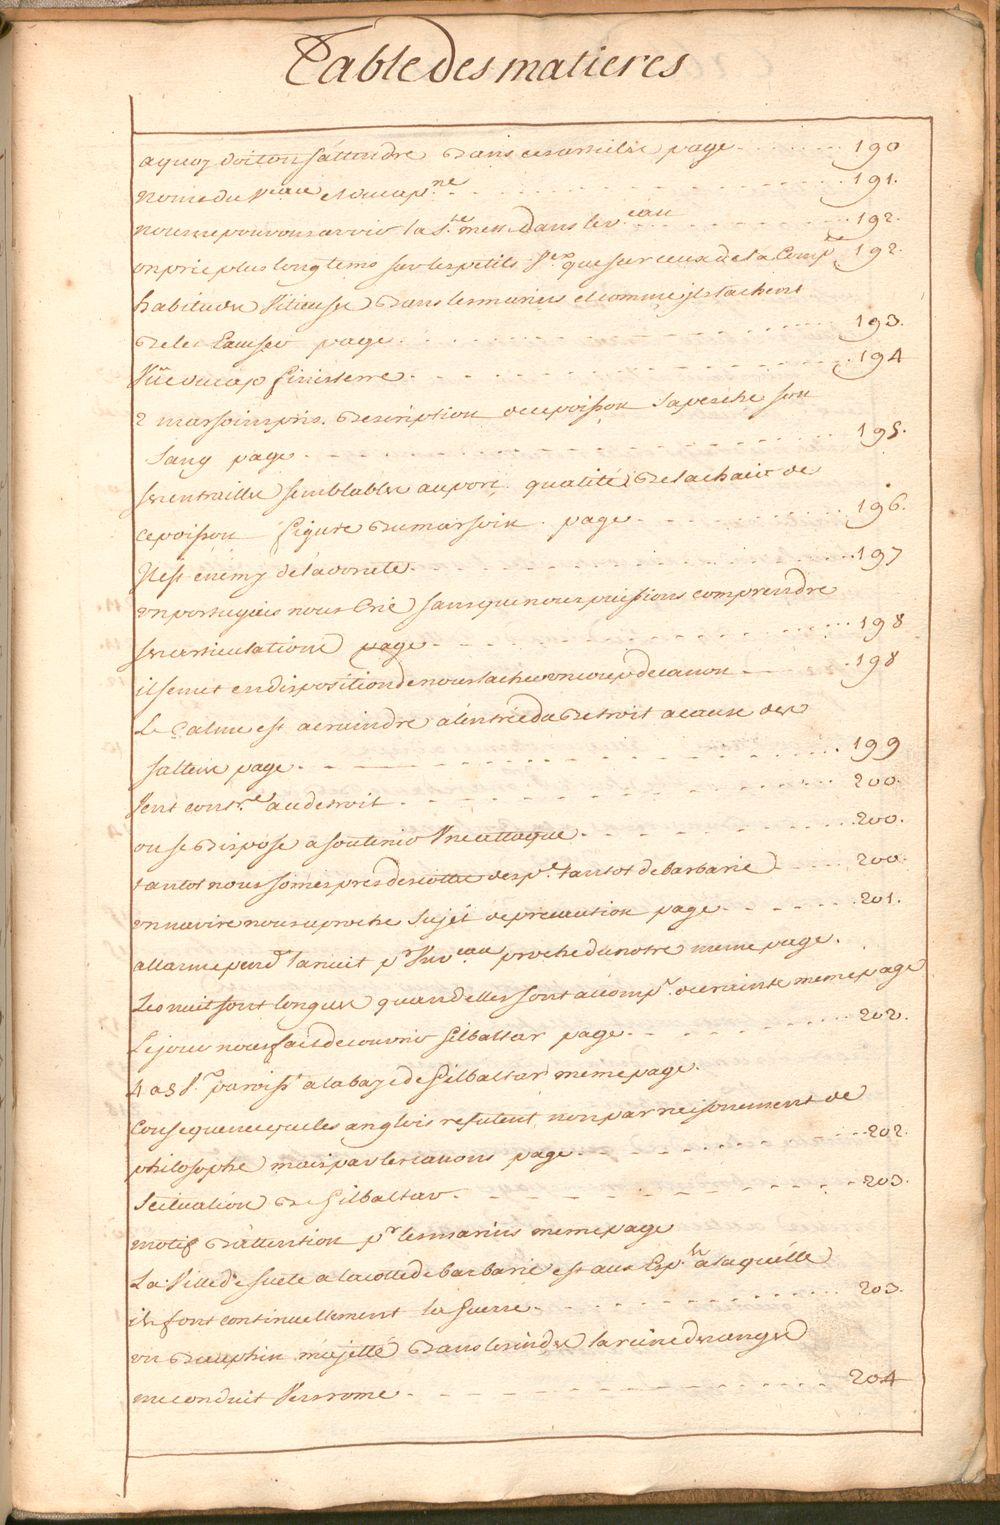 Table des matieres
a quoy doit on s'attendre dans ce page 190
noms du Veau et du cap.ne 191.
nous ne pouvons avoir la S.te messe dans le v.eau 192.
on prie plus longtems sur les petits V.eaux que sur ceux de la Comp.e 192.
habitudes Vitieuses dans les mariniers et comme ils tachent
de les page 193.
Vüe du cap finisterre 194
2 marsoins pris. Description du poisson sa peche son
sang page 195.
ses entrailles semblables au porc. qualité de sa chair de
ce poisson figure du marsoin page 196.
Il est enemy de la 197
un portugais nous crie sans que nous puissions comprendre
ses articulations page 198
il se met en disposition de nous lacher un coup de canon 198
Le Calme est a craindre a l'entrée du Detroit a cause des
page 199
Vent cont.re au detroit 200.
on se dispose a soutenir Une attaque 200.
tantot nous somes pres des cottes d'esp.e tantot de barbarie 200.
un navire nous aproche sujét de precaution page 201.
allarme pend.t la nuit p.r Un v.eau proche du notre meme page.
Les nuits sont longues quand elles sont acomp.s de crainte meme page
Le jour nous fait decouvrir Gilbaltar page 202.
4 a 5 V.x parois.t a la baye de Gilbaltar meme page.
Consequence que les anglois refutent, non par raisonement de
philosophe mais par les canons page 202.
Scituation de Gilbaltar 203.
motif d'attention p.r les marins meme page
La Ville de Suete a la cotte de barbarie est aux Esp.ls a laquelle
ils font continuellement la Guerre 203.
un dauphin m'a jetté dans les indes la reine des anges
me conduit Vers rome 204